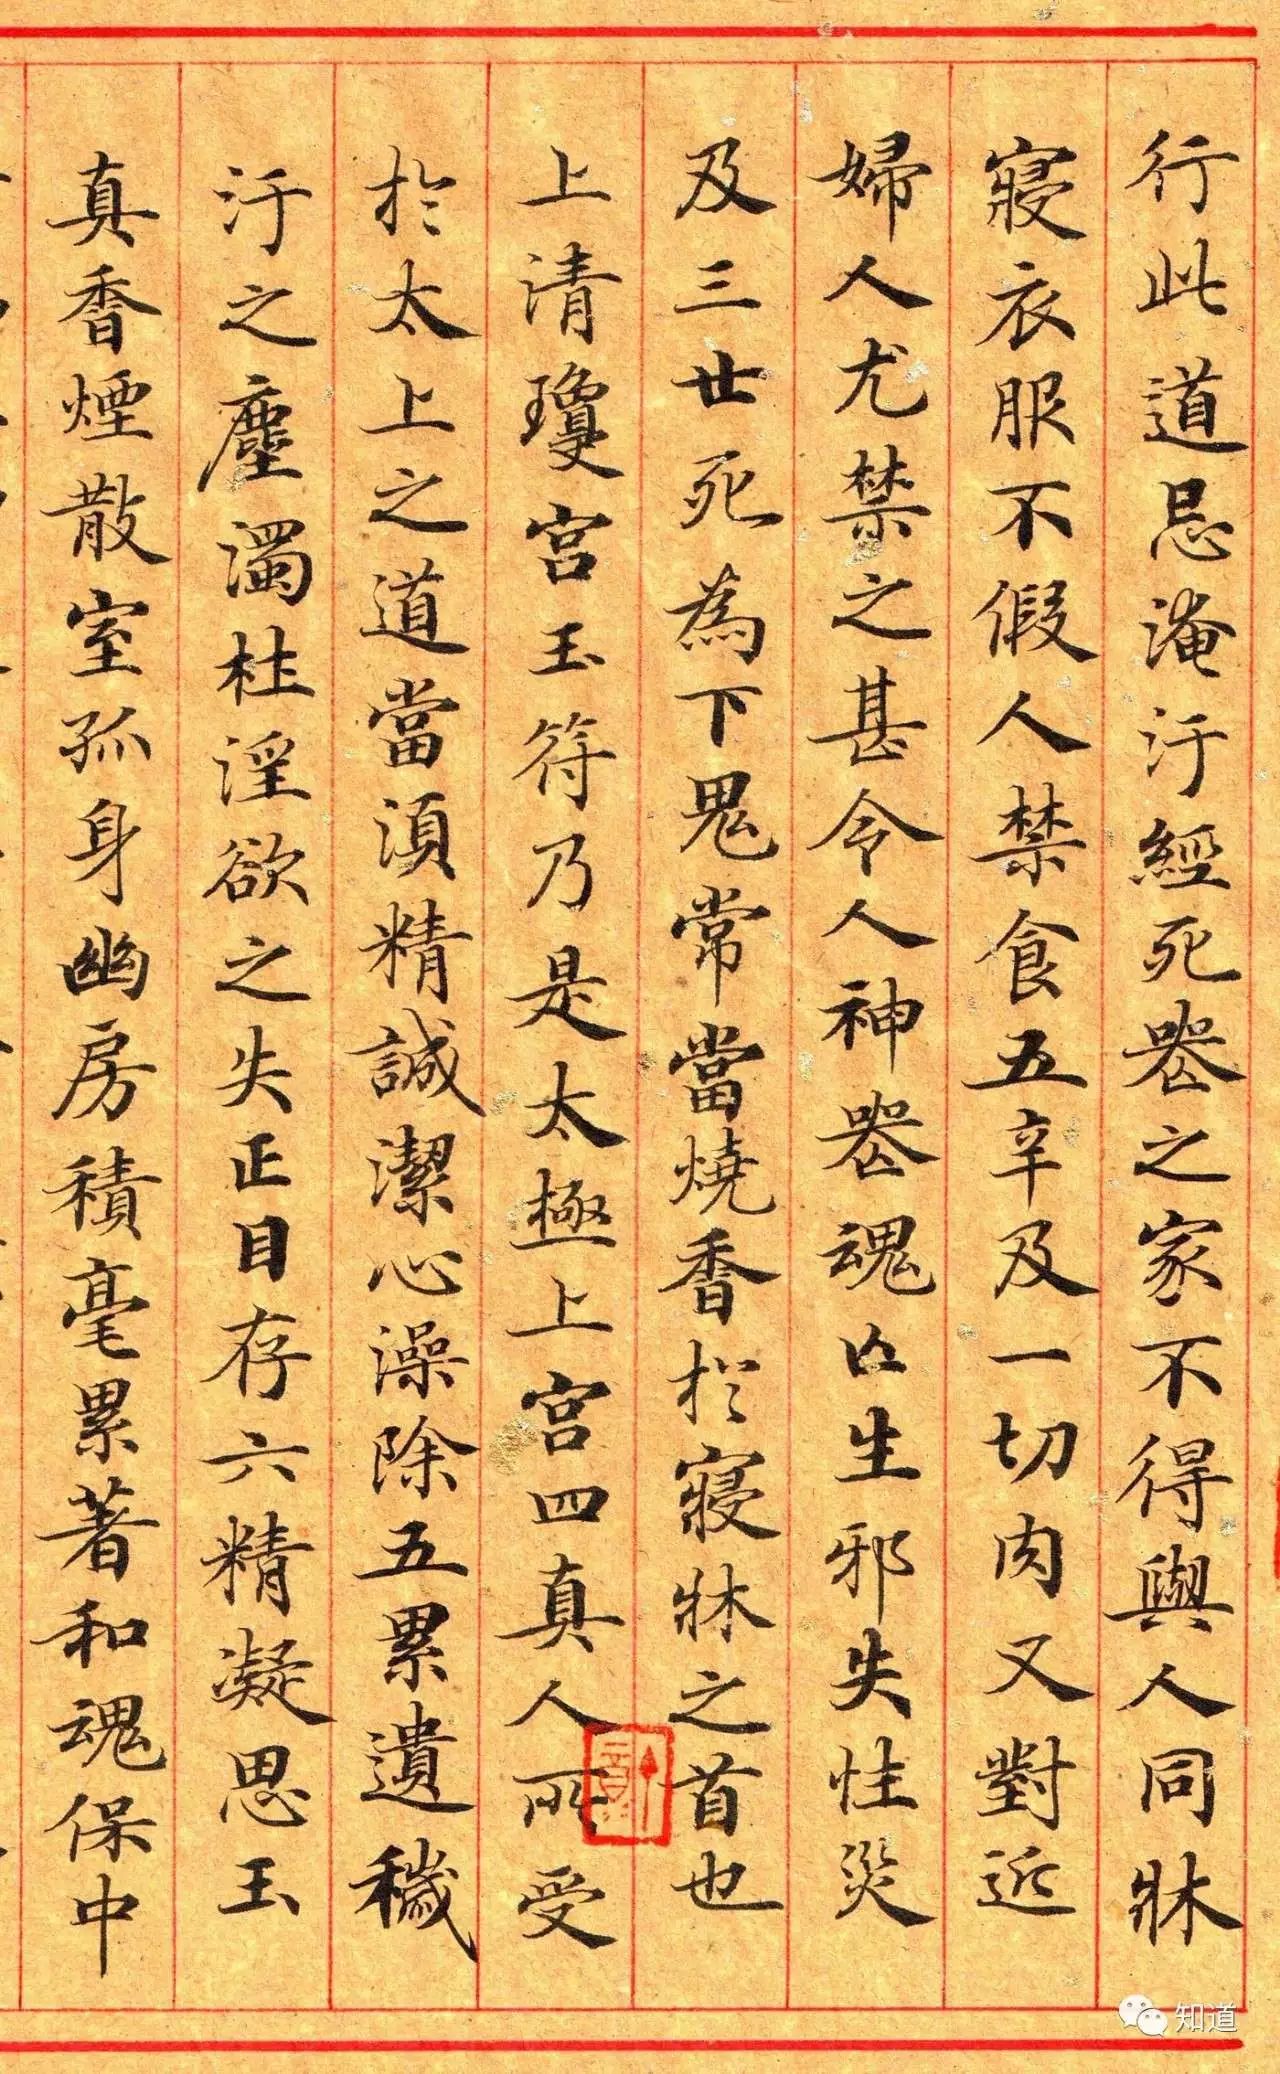 行此道忌淹汙經死丧之家不得與人同牀
寢衣服不假人禁食五辛及一切肉又對近
婦人尤禁之甚令人神丧魂亡生邪失性災
及三世死為下鬼常當燒香於寢牀之首也
上清瓊宮玉符乃是太極上宮四真人所受
於太上之道當須精誠潔心澡除五累遺穢
汙之塵濁杜淫欲之失正目存六精凝思玉
真香煙散室孤身幽房積毫累著和魂保中
知道